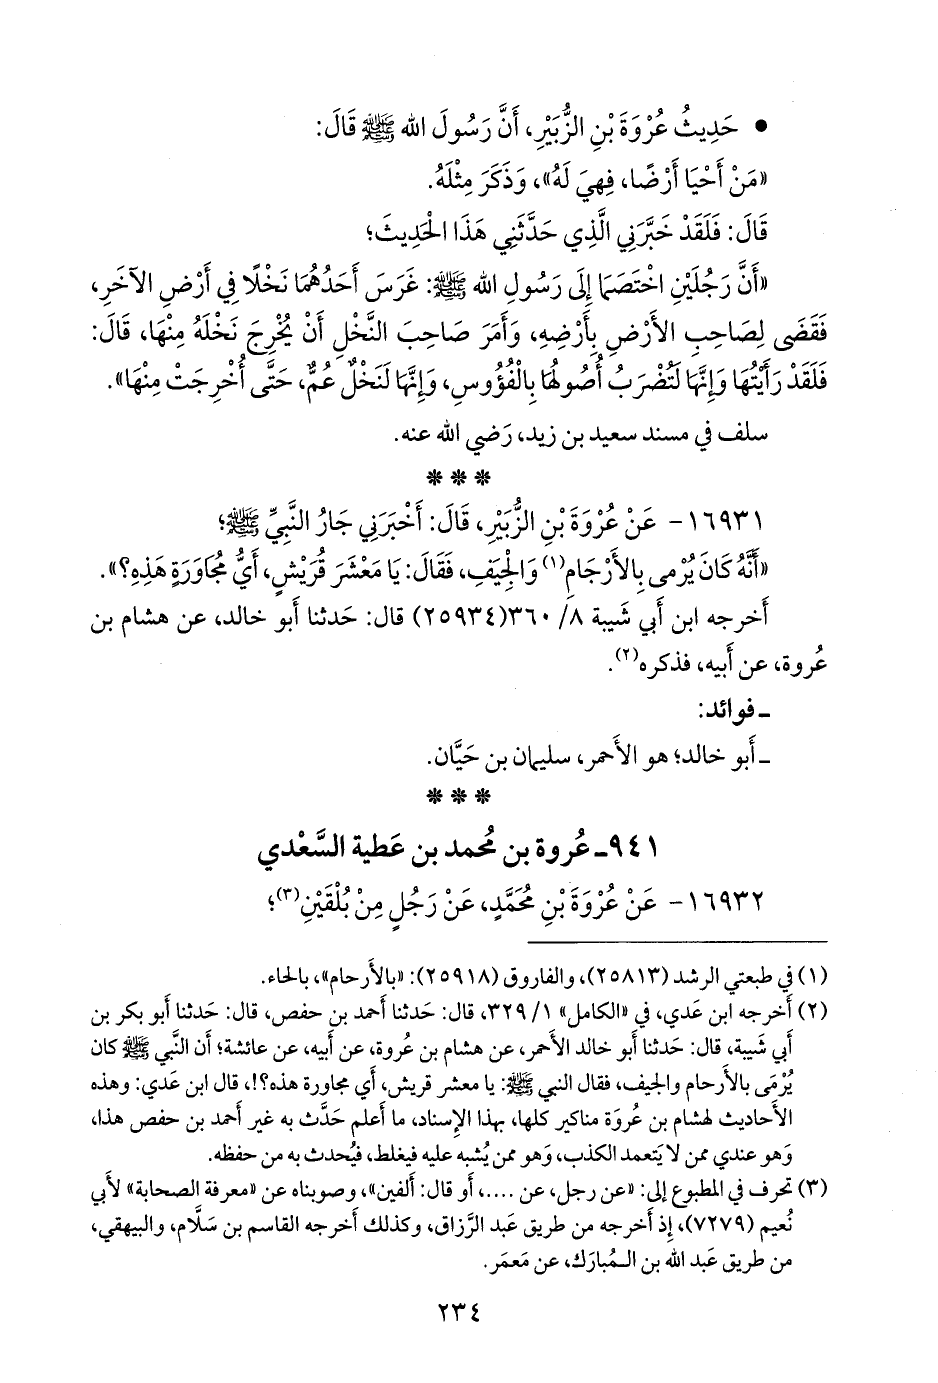 • حَدِيثُ عُرْوَةَ بْنِ الزُّبَيْرِ، أَنَّ رَسُولَ الله ﷺ قَالَ:
«مَنْ أَحْيَا أَرْضًا، فَهِيَ لَهُ»، وَذَكَرَ مِثْلَهُ.
قَالَ: فَلَقَدْ خَبَّرَنِي الَّذِي حَدَّثَنِي هَذَا الْحَدِيثَ؛
«أَنَّ رَجُلَيْنِ اخْتَصَمَا إِلَى رَسُولِ الله ﷺ: غَرَسَ أَحَدُهُمَا نَخْلًا فِي أَرْضِ الآخَرِ،
فَقَضَى لِصَاحِبِ الأَرْضِ بِأَرْضِهِ، وَأَمَرَ صَاحِبَ النَّخْلِ أَنْ يُخْرِجَ نَخْلَهُ مِنْهَا، قَالَ:
فَلَقَدْ رَأَيْتُهَا وَإِنَّهَا لَتُضْرَبُ أُصُولُهَا بِالْفُؤُوسِ، وَإِنَّهَا لَنَخْلٌ عُمٌّ، حَتَّى أُخْرِجَتْ مِنْهَا».
سلف في مسند سعيد بن زيد، رَضي الله عنه.
* * *
١٦٩٣١- عَنْ عُرْوَةَ بْنِ الزُّبَيْرِ، قَالَ: أَخْبَرَنِي جَارُ النَّبِيِّ ﷺ؛
«أَنَّهُ كَانَ يُرْمى بِالأَرْجَامِ(١) وَالْجِيَفِ، فَقَالَ: يَا مَعْشَرَ قُرَيْشٍ، أَيُّ مُجَاوَرَةٍ هَذِهِ؟».
أَخرجه ابن أَبي شَيبة ٨/ ٣٦٠(٢٥٩٣٤) قال: حَدثنا أَبو خالد، عن هشام بن
عُروة، عن أَبيه، فذكره(٢).
ـ فوائد:
ـ أَبو خالد؛ هو الأَحمر، سليمان بن حَيَّان.
* * *
٩٤١ـ عُروة بن مُحمد بن عَطية السَّعْدي
١٦٩٣٢- عَنْ عُرْوَةَ بْنِ مُحَمَّدٍ، عَنْ رَجُلٍ مِنْ بُلْقَيْنِ(٣)؛
(١) في طبعتي الرشد (٢٥٨١٣)، والفاروق (٢٥٩١٨): «بالأَرحام»، بالحاء.
(٢) أَخرجه ابن عَدي، في «الكامل» ١/ ٣٢٩، قال: حَدثنا أَحمد بن حفص، قال: حَدثنا أَبو بكر بن
أَبي شَيبة، قال: حَدثنا أَبو خالد الأَحمر، عن هشام بن عُروة، عن أَبيه، عن عائشة؛ أَن النَّبي ﷺ كان
يُرْمَى بالأَرحام والجيف، فقال النبي ﷺ: يا معشر قريش، أَي مجاورة هذه؟!، قال ابن عَدي: وهذه
الأَحاديث لهشام بن عُروَة مناكير كلها، بهذا الإِسناد، ما أَعلم حَدَّث به غير أَحمد بن حفص هذا،
وَهو عندي ممن لا يَتعمد الكذب، وَهو ممن يُشبه عليه فيغلط، فيُحدث به من حفظه.
(٣) تحرف في المطبوع إلى: «عن رجل، عن ....، أَو قال: أَلفين»، وصوبناه عن «معرفة الصحابة» لأَبي
نُعيم (٧٢٧٩)، إِذ أَخرجه من طريق عَبد الرَّزاق، وكذلك أَخرجه القاسم بن سَلَّام، والبيهقي،
من طريق عَبد الله بن الـمُبارَك، عن مَعمَر.
٢٣٤